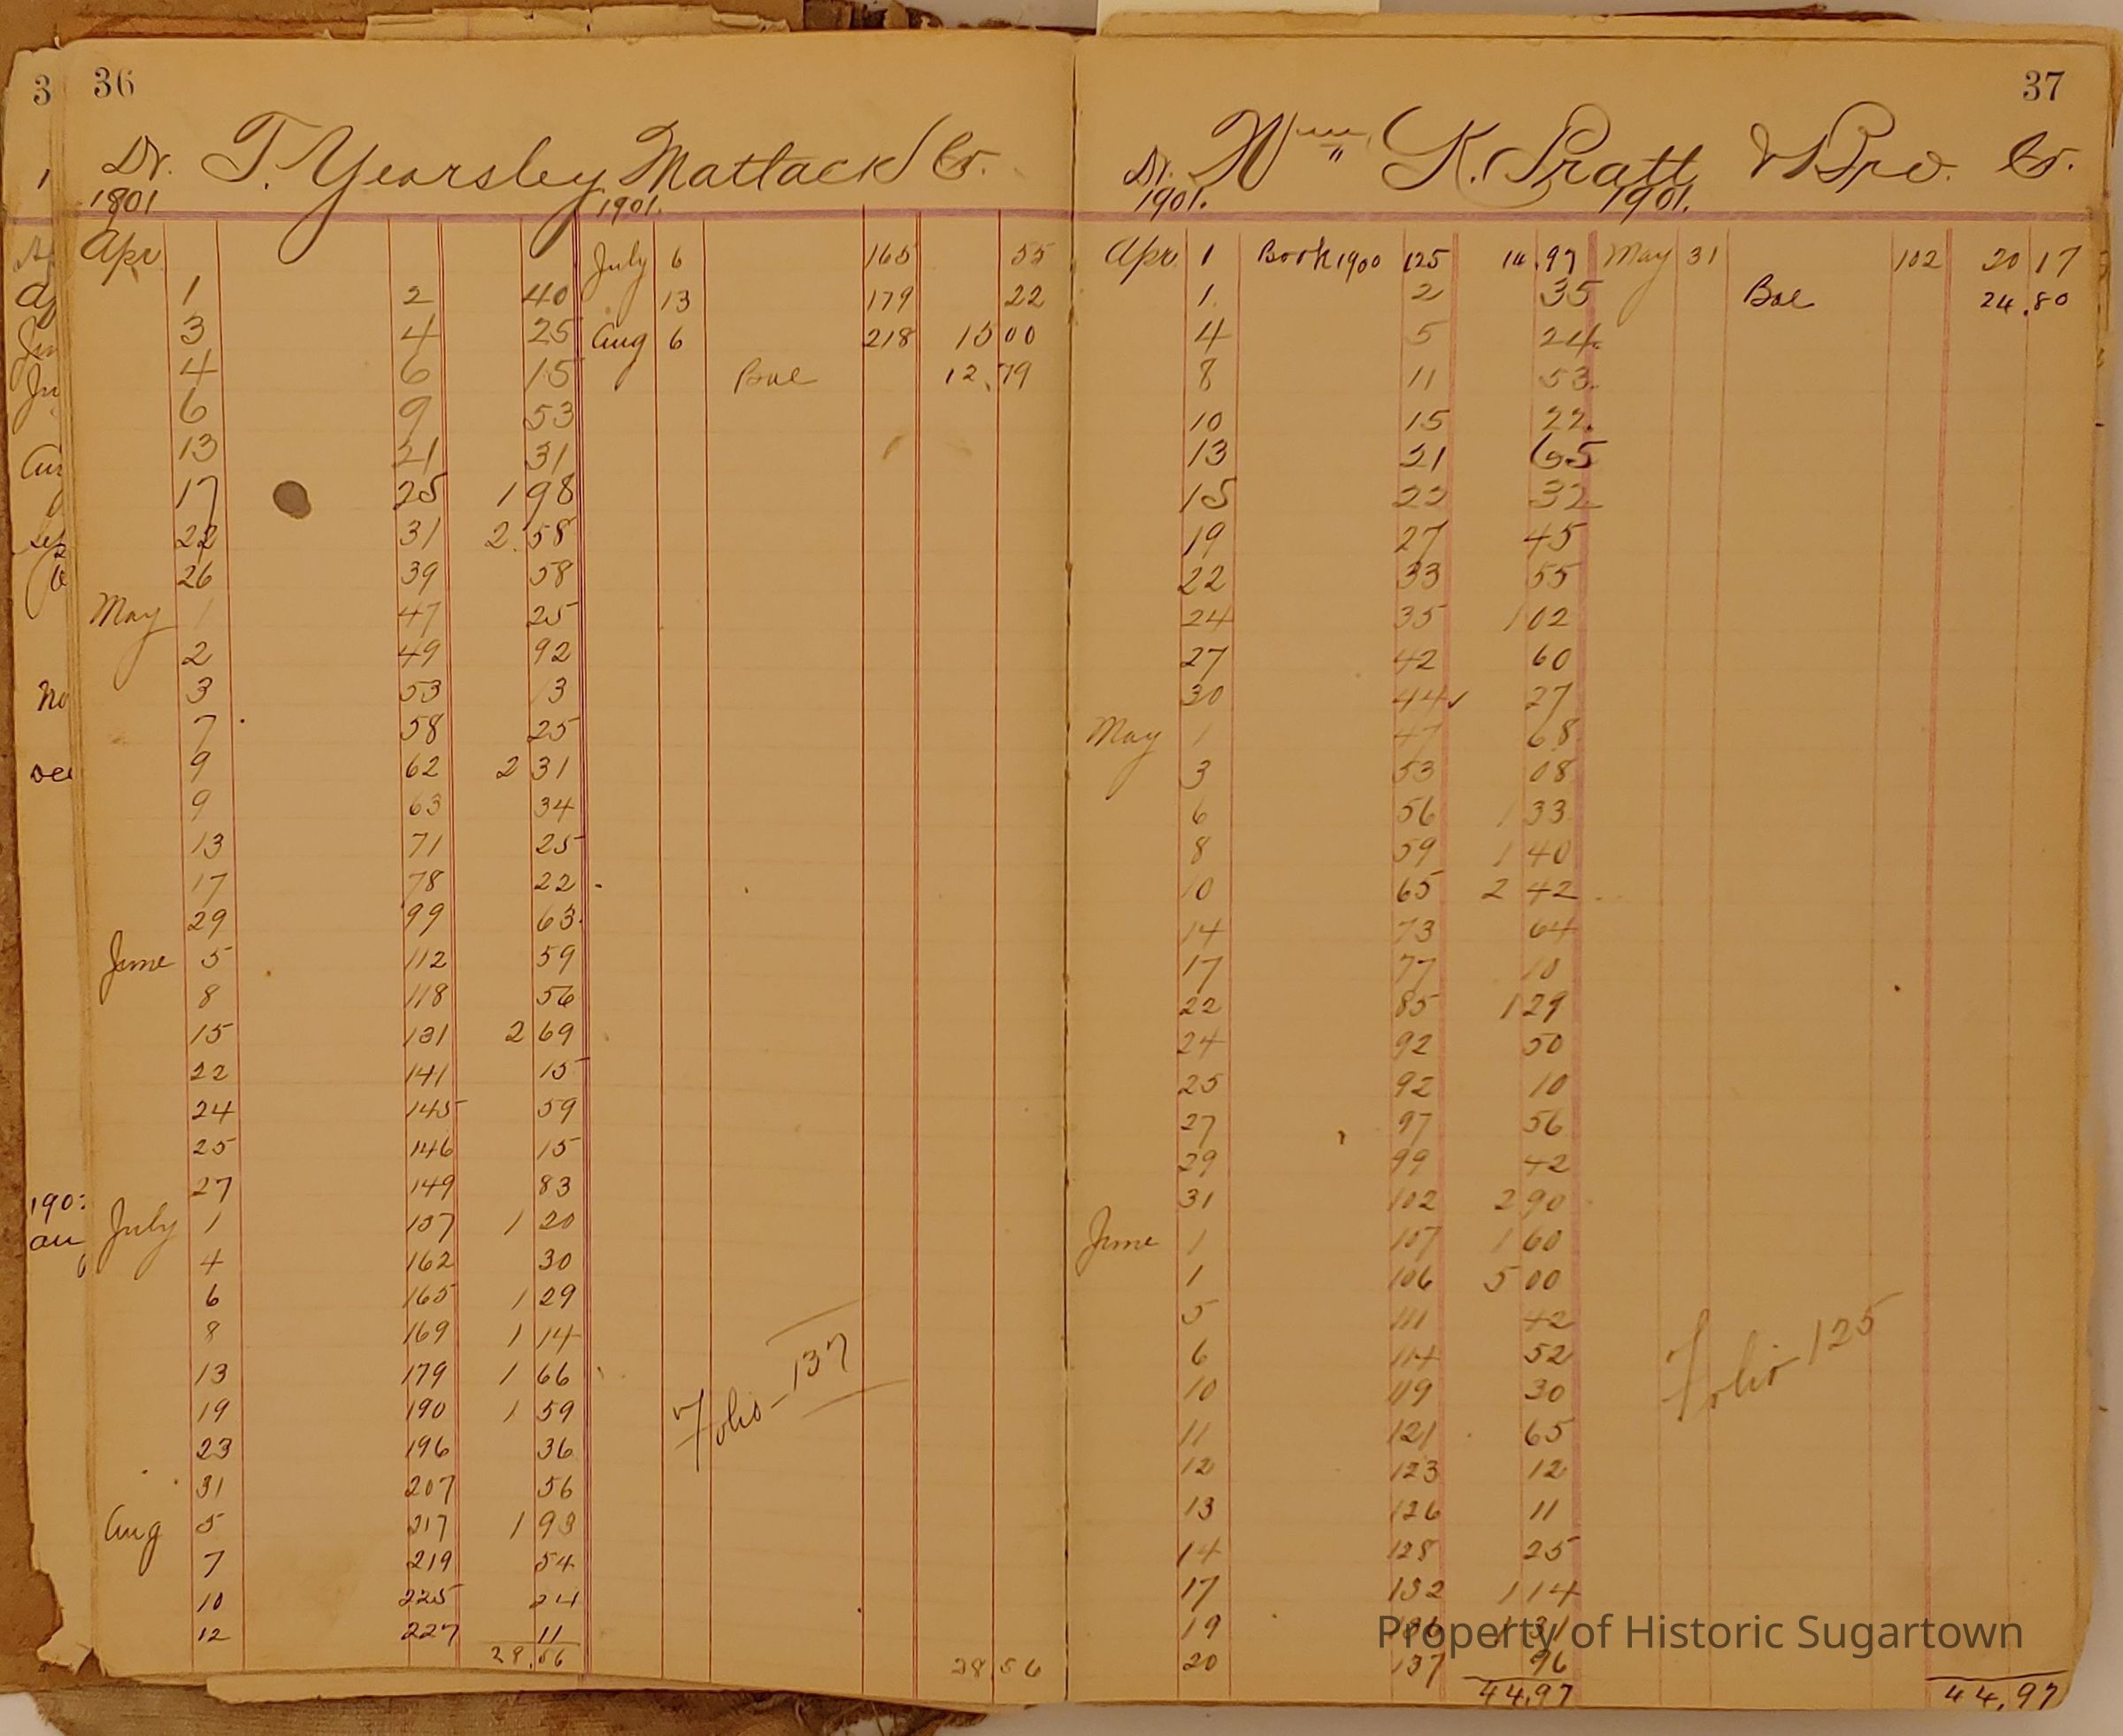 3 36
Dr. T. Yearsley Matlack Cr.
1901 1901.
Apr July 6 165 55
1 2 40 13 179 22
3 4 25 Aug 6 218 15 00
4 6 15 Bal 12.79
6 9 53
13 21 31
17 25 1 98
22 31 2.58
26 39 58
May 1 47 25
2 49 92
3 53 13
7 58 25
9 62 2 31
9 63 34
13 71 25
17 78 22
29 99 63
June 5 112 59
8 118 56
15 131 2 69
22 141 15
24 145 59
25 146 15
27 149 83
July 1 157 1 20
4 162 30
6 165 1 29
8 169 1 14
13 179 1 66
19 190 1 59
23 196 36
31 207 56
Aug 5 217 1 93
7 219 54
10 225 24
12 227 11
28.56 28.56
Folio-137
37
Dr. Wm K. Pratt & Bro. Cr.
1901. 1901.
Apr. 1 Book 1900 125 14.97 May 31 102 20 17
1. 2 35 Bal 24.80
4 5 24
8 11 53
10 15 22
13 21 65
15 22 32
19 27 45
22 33 55
24 35 1 02
27 42 60
30 44 27
May 1 47 68
3 53 08
6 56 1 33
8 59 1 40
10 65 2 42
14 73 64
17 77 10
22 85 1 29
24 92 50
25 92 10
27 97 56
29 99 42
31 102 2 90
June 1 107 1 60
1 106 5 00
5 111 42
6 114 52
10 119 30
11 121 65
12 123 12
13 126 11
14 128 25
17 132 1 14
19 136 1 31
20 137 96
44.97 44.97
Folio 125
Property of Historic Sugartown